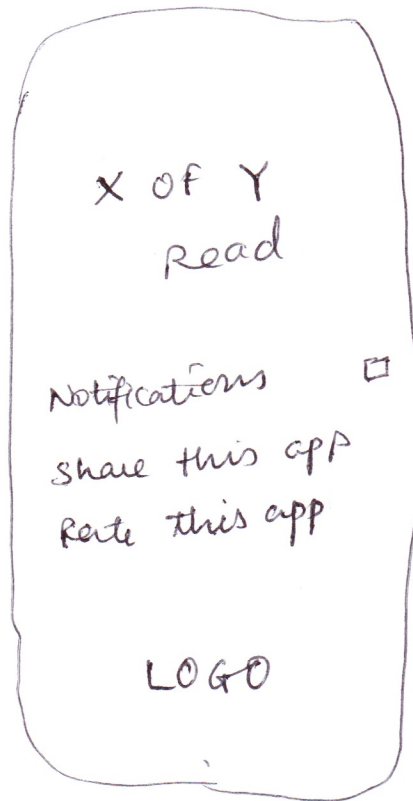 X OF Y
Read
Notifications
Share this app
Rate this app
LOGO